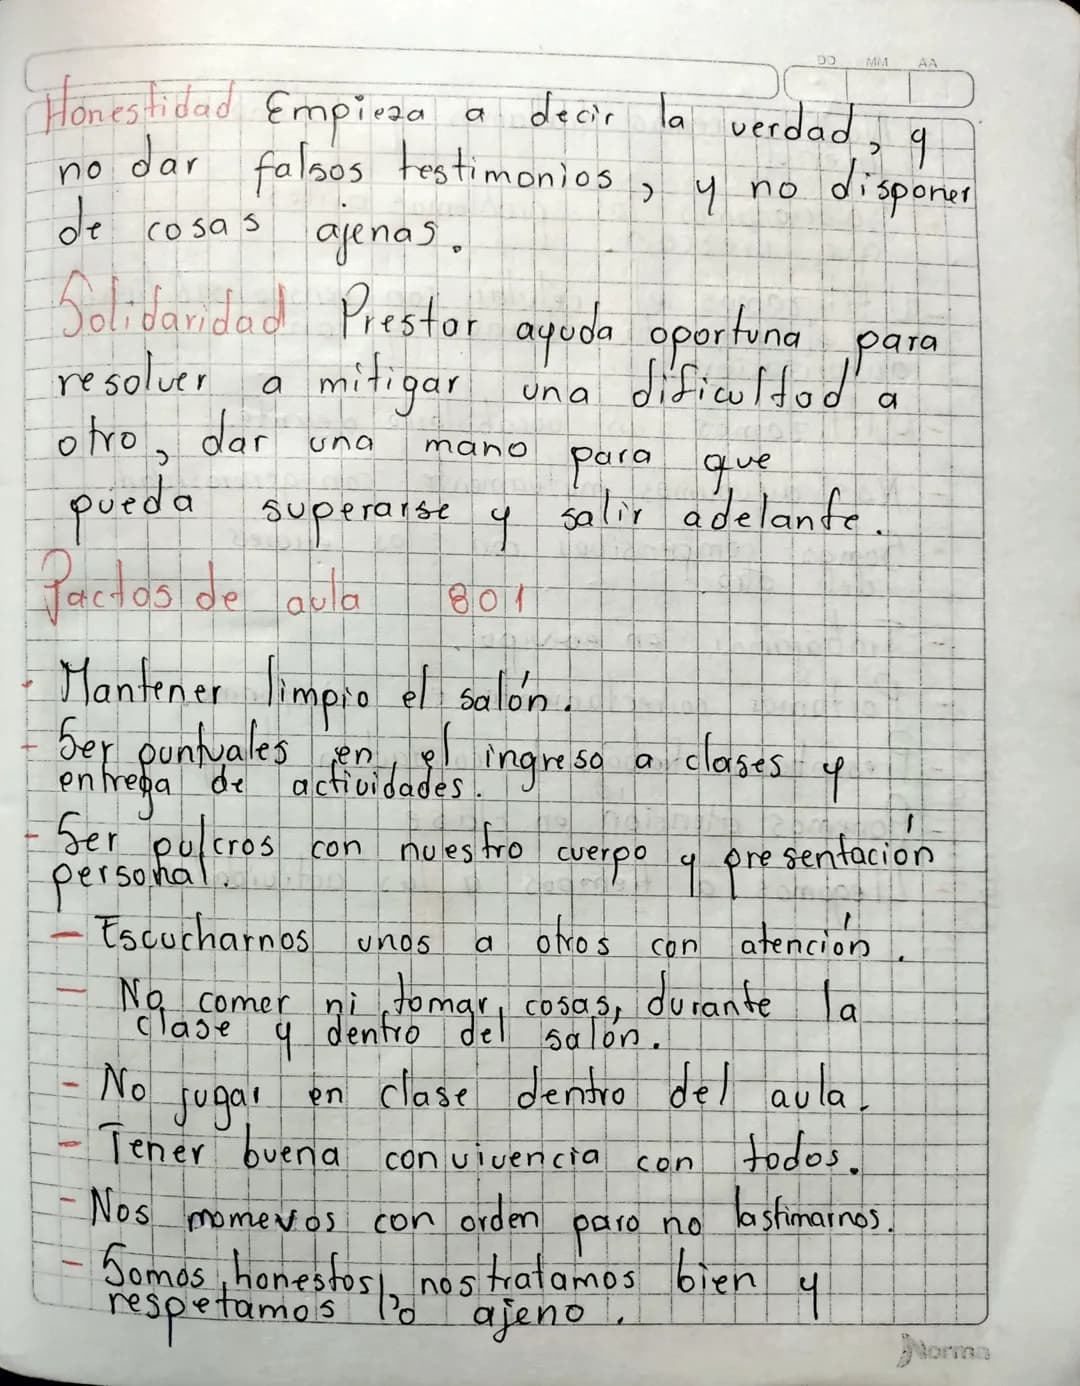 DD MM AA
Honestidad Empieza a decir la verdad, y
no dar falsos testimonios, y no disponer
de cosas ajenas.
Solidaridad Prestar ayuda oportuna para
resolver a mitigar una dificultad a
otro, dar una mano para que
pueda superarse y salir adelante.
Pactos de aula 801
- Mantener limpio el salón.
- Ser puntuales en el ingreso a clases y
entrega de actividades.
- Ser pulcros con nuestro cuerpo y presentación
personal.
- Escucharnos unos a otros con atención.
- No comer ni tomar cosas, durante la
clase y dentro del salón.
- No jugar en clase dentro del aula.
- Tener buena convivencia con todos.
- Nos momevos con orden para no lastimarnos.
- Somos honestos, nos tratamos bien y
respetamos lo ajeno.
Norma